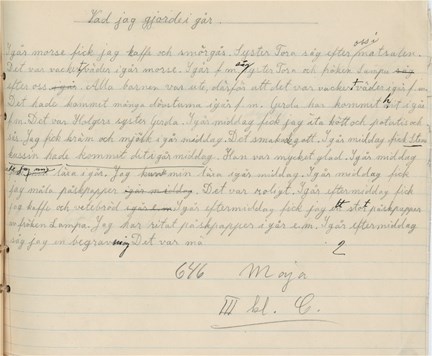 Vad jag gjorde i går
I går morse fick jag kaffe och smörgås. Syster Tora såg efter oss i matsalen.
Det var vackert väder i går morse. I går f.m. såg syster Tora och fröken Lampa
efter oss i går. Alla barnen var ute, därför att det var vackert väder i går f.m.
Det hade kommit många döstumma i går f.m. Gerda har kommit hit i går
f.m. Det var Holgers syster Gerda. I går middag fick jag äta kött och potatis och
sås. Jag fick kräm och mjölk i går middag. Det smakade gott. I går middag fick
hade kommit dit i går middag. Han var mycket glad. I går middag
läxa i går. Jag kan min läxa i går middag. I går middag fick
jag måla påskpapper i går middag. Det var roligt. I går eftermiddag fick
jag kaffe och vetebröd i går e.m. I går eftermiddag fick jag ett stort påskpapper
av fröken Lampa. Jag har ritat påskpapper i går e.m. I går eftermiddag
såg jag en begravning. Det var
2
646 Maja
III kl. C.